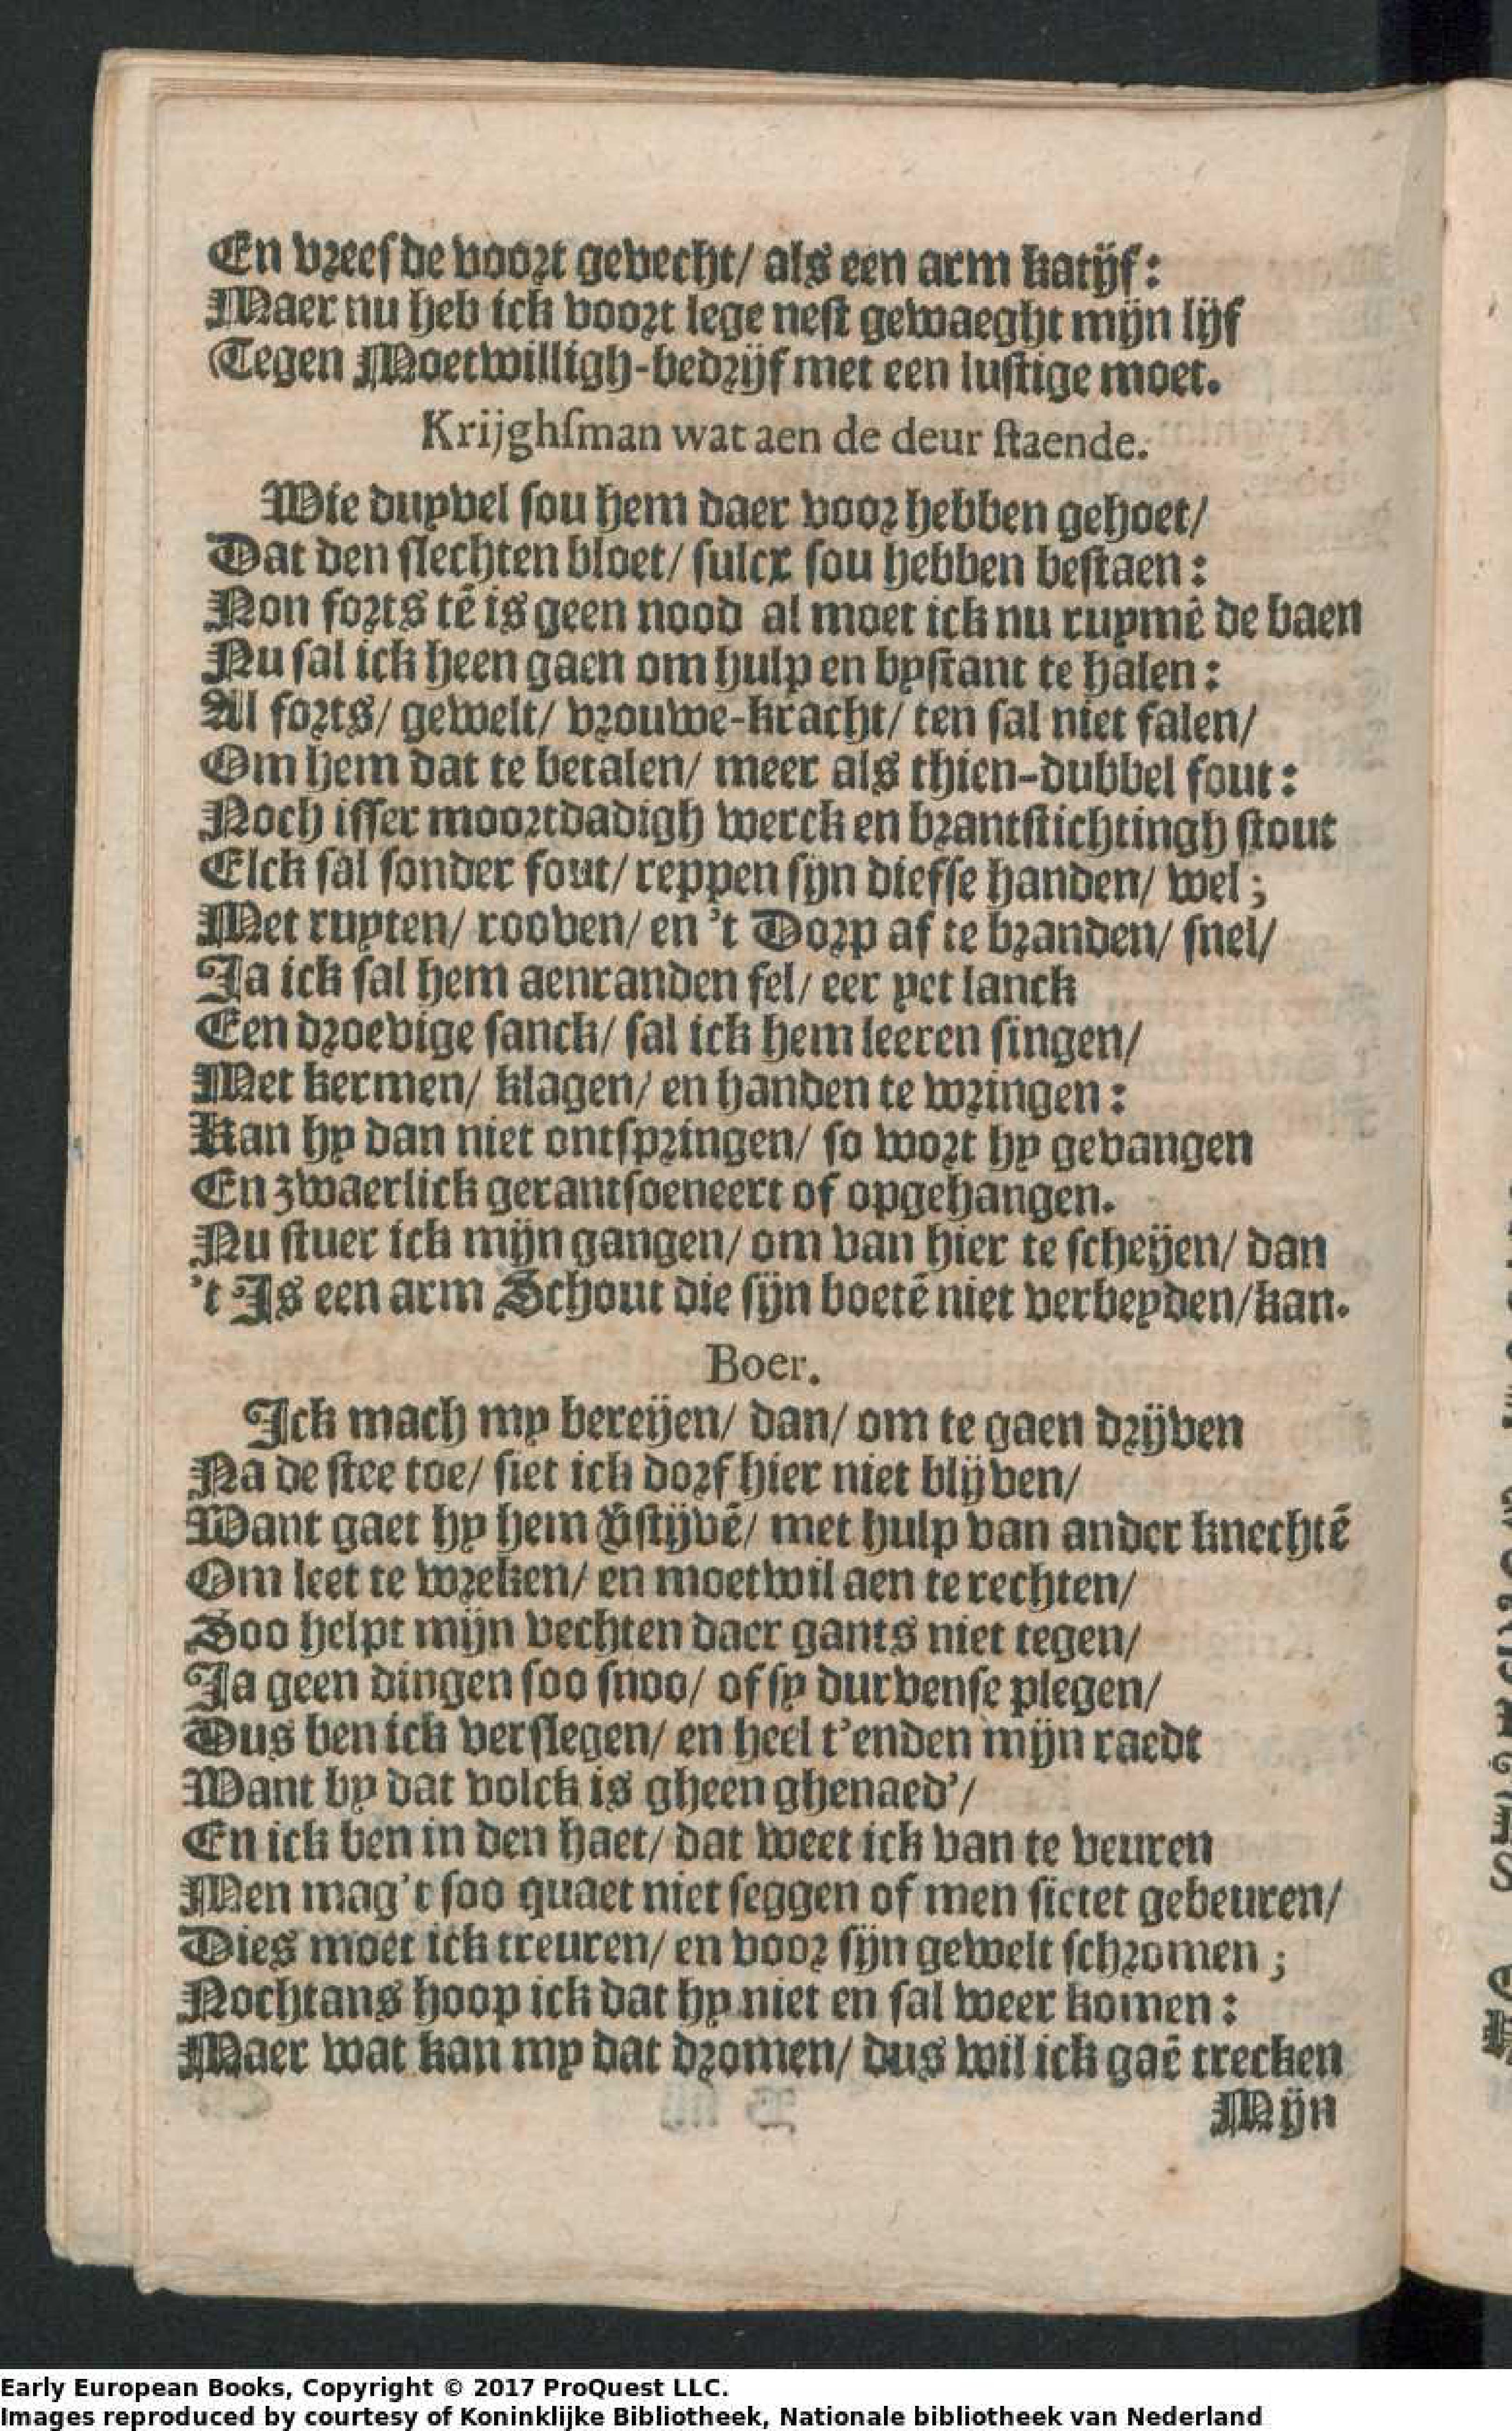 En vreesde voort gevecht/ als een arm katijf:
Maer nu heb ick voort lege nest gewaeght mijn lijf
Tegen Moetwilligh-bedrijf met een lustige moet.
Krijghsman wat aen de deur staende.
Wie duyvel sou hem daer voor hebben gehoet/
Dat den slechten bloet/ sulcx sou hebben bestaen:
Non forts tẽ is geen nood al moet ick nu ruymẽ de baen
Nu sal ick heen gaen om hulp en bystant te halen:
Al forts/ gewelt/ vrouwe-kracht/ ten sal niet falen/
Om hem dat te betalen/ meer als thien-dubbel fout:
Noch isser moortdadigh werck en brantstichtingh stout
Elck sal sonder fout/ reppen sijn diefse handen/ wel;
Met ruyten/ rooven/ en 't Dorp af te branden/ snel/
Ja ick sal hem aenranden fel/ eer yet lanck
Een droevige sanck/ sal ick hem leeren singen/
Met kermen/ klagen/ en handen te wringen:
Kan hy dan niet ontspringen/ so wort hy gevangen
En zwaerlick gerantsoeneert of opgehangen.
Nu stuer ick mijn gangen/ om van hier te scheijen/ dan
't Is een arm Schout die sijn boetẽ niet verbeyden/kan.
Boer.
Ick mach my bereijen/ dan/ om te gaen drijven
Na de stee toe/ siet ick dorf hier niet blijven/
Want gaet hy hem v̄stijvẽ/ met hulp van ander knechtẽ
Om leet te wreken/ en moetwil aen te rechten/
Soo helpt mijn vechten daer gants niet tegen/
Ja geen dingen soo snoo/ of sy durvense plegen/
Dus ben ick verslegen/ en heel t'enden mijn raedt
Want by dat volck is gheen ghenaed'/
En ick ben in den haet/ dat weet ick van te veuren
Men mag't soo quaet niet seggen of men sietet gebeuren/
Dies moet ick treuren/ en voor sijn gewelt schromen;
Nochtans hoop ick dat hy niet en sal weer komen:
Maer wat kan my dat dromen/ dus wil ick gaẽ trecken
Mijn
Early European Books, Copyright © 2017 ProQuest LLC.
Images reproduced by courtesy of Koninklijke Bibliotheek, Nationale bibliotheek van Nederland